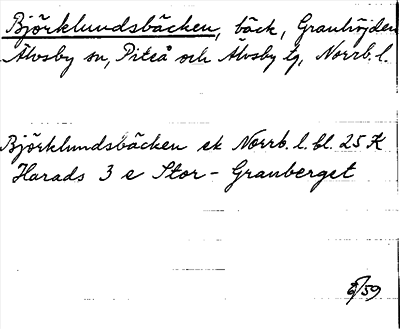 Björklundsbäcken, bäck, Granhöjden
Älvsby sn, Piteå och Älvsby tg, Norrb. l.
Björklundsbäcken ek Norrb. l. bl. 25 K
Harads 3 e Stor-Granberget
/59